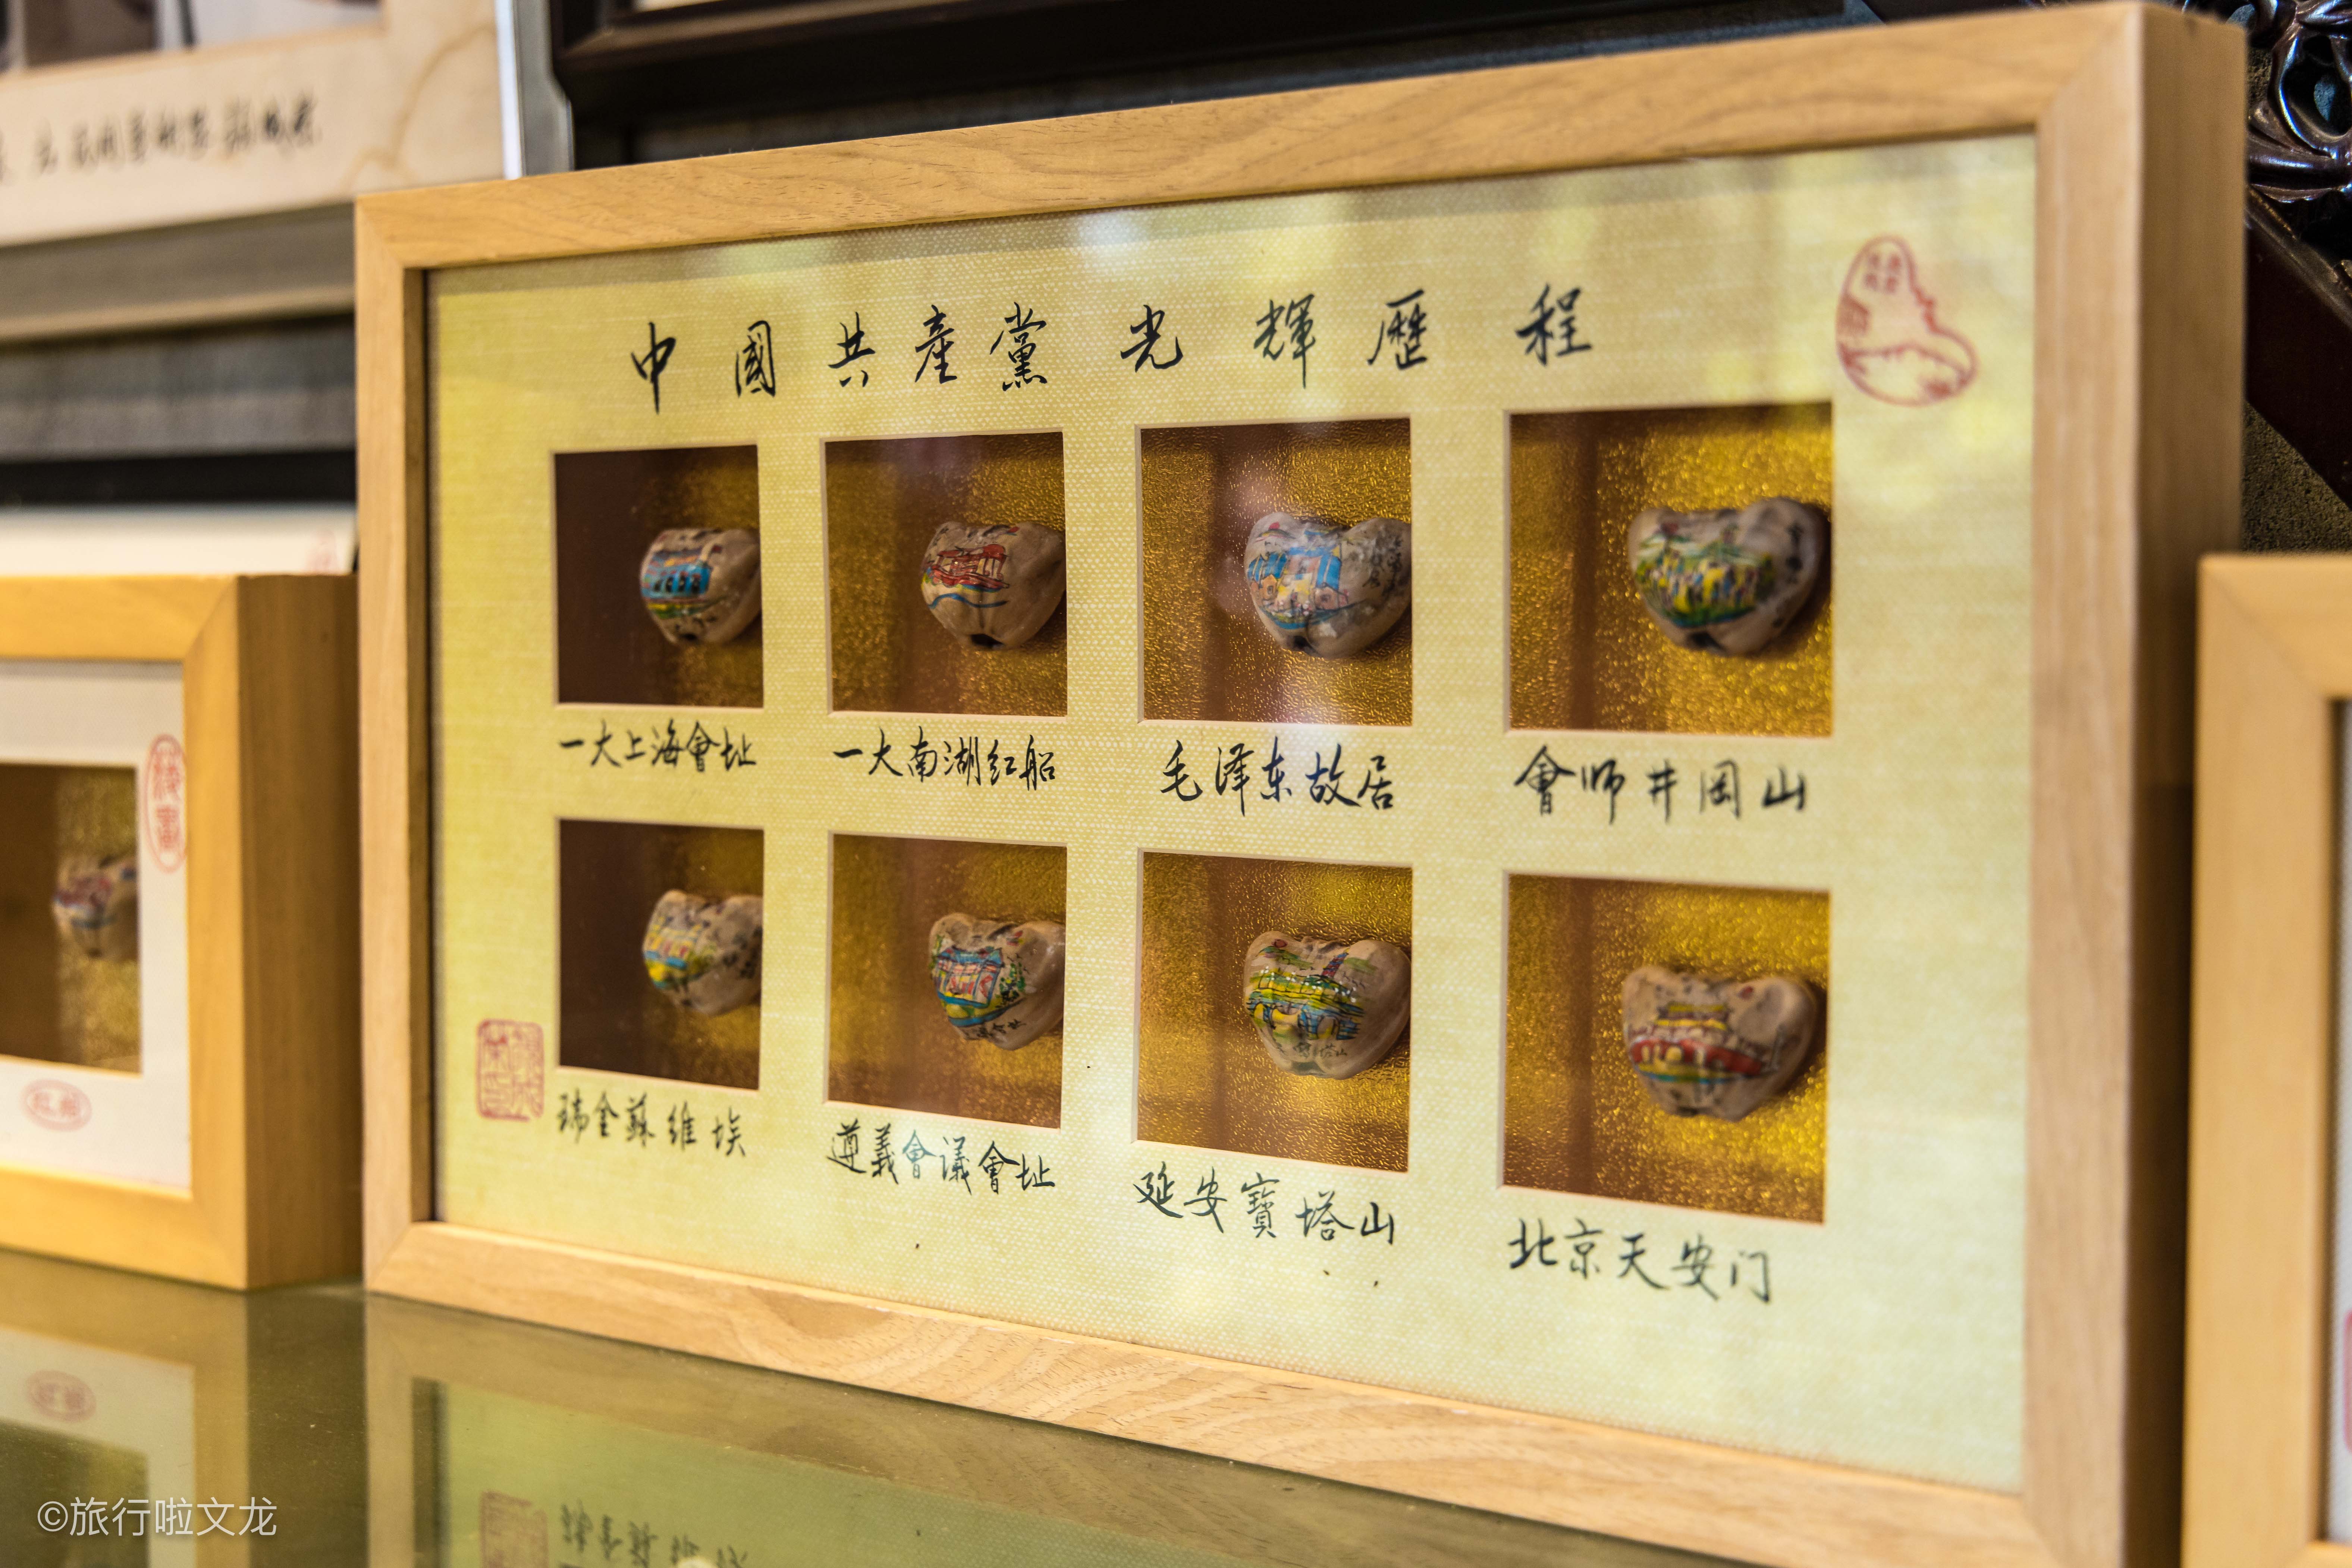 中國共產黨光輝歷程
一大上海會址
一大南湖红船
毛泽东故居
會师井岡山
瑞金蘇维埃
遵義會議會址
延安寶塔山
北京天安门
©旅行啦文龙